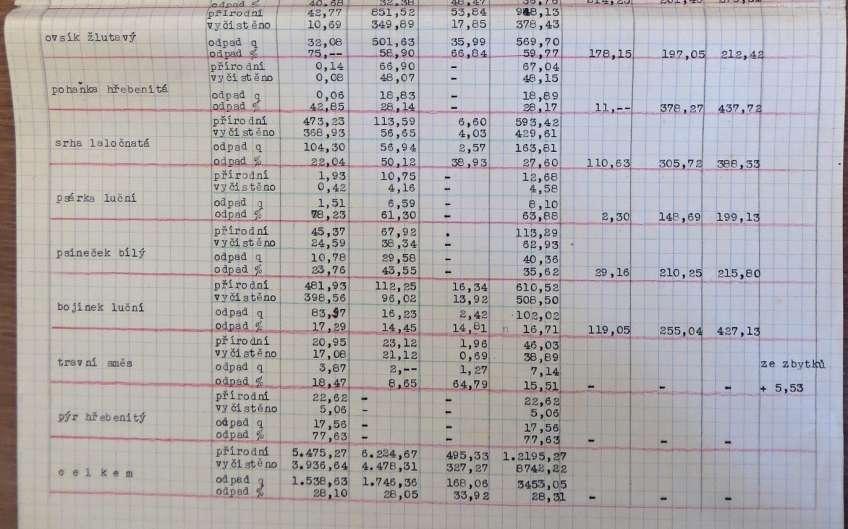 přírodní 42,77 851,52 53,84 948,13
vyčistěno 10,69 349,89 17,85 378,43
ovsík žlutavý
odpad q 32,08 501,63 35,99 569,70
odpad % 75-- 58,90 66,84 59,77 178,15 197,05 212,42
přírodní 0,14 66,90 - 67,04
vyčistěno 0,08 48,07 - 48,15
poháňka hřebenitá
odpad q 0,06 18,83 - 18,89
odpad % 42,85 28,14 - 28,17 11,-- 378,27 437,72
přírodní 473,23 113,59 6,60 593,42
vyčistěno 368,93 56,65 4,03 429,61
srha laločnatá
odpad q 104,30 56,94 2,57 163,81
odpad % 22,04 50,12 38,93 27,60 110,63 305,72 388,33
přírodní 1,93 10,75 - 12,68
vyčistěno 0,42 4,16 - 4,58
psárka luční
odpad q 1,51 6,59 - 8,10
odpad % 78,23 61,30 - 63,88 2,30 148,69 199,13
přírodní 45,37 67,92 . 113,29
vyčistěno 24,59 38,34 - 62,93
psineček bílý
odpad q 10,78 29,58 - 40,36
odpad % 23,76 43,55 - 35,62 29,16 210,25 215,80
přírodní 481,93 112,25 16,34 610,52
vyčistěno 398,56 96,02 13,92 508,50
bojínek luční
odpad q 83,97 16,23 2,42 102,02
odpad % 17,29 14,45 14,81 n 16,71 119,05 255,04 427,13
přírodní 20,95 23,12 1,96 46,03
vyčistěno 17,08 21,12 0,69 38,89
travní směs ze zbytků
odpad q 3,87 2,-- 1,27 7,14
odpad % 18,47 8,65 64,79 15,51 - - - + 5,53
přírodní 22,62 - - 22,62
vyčistěno 5,06 - - 5,06
pýr hřebenitý
odpad q 17,56 - - 17,56
odpad % 77,63 - - 77,63 - - -
přírodní 5.475,27 6.224,67 495,33 1.2195,27
vyčistěno 3.936,64 4.478,31 327,27 8742,22
c e l k e m
odpad q 1.538,63 1.746,36 168,06 3453,05
odpad % 28,10 28,05 33,92 28,31 - - -